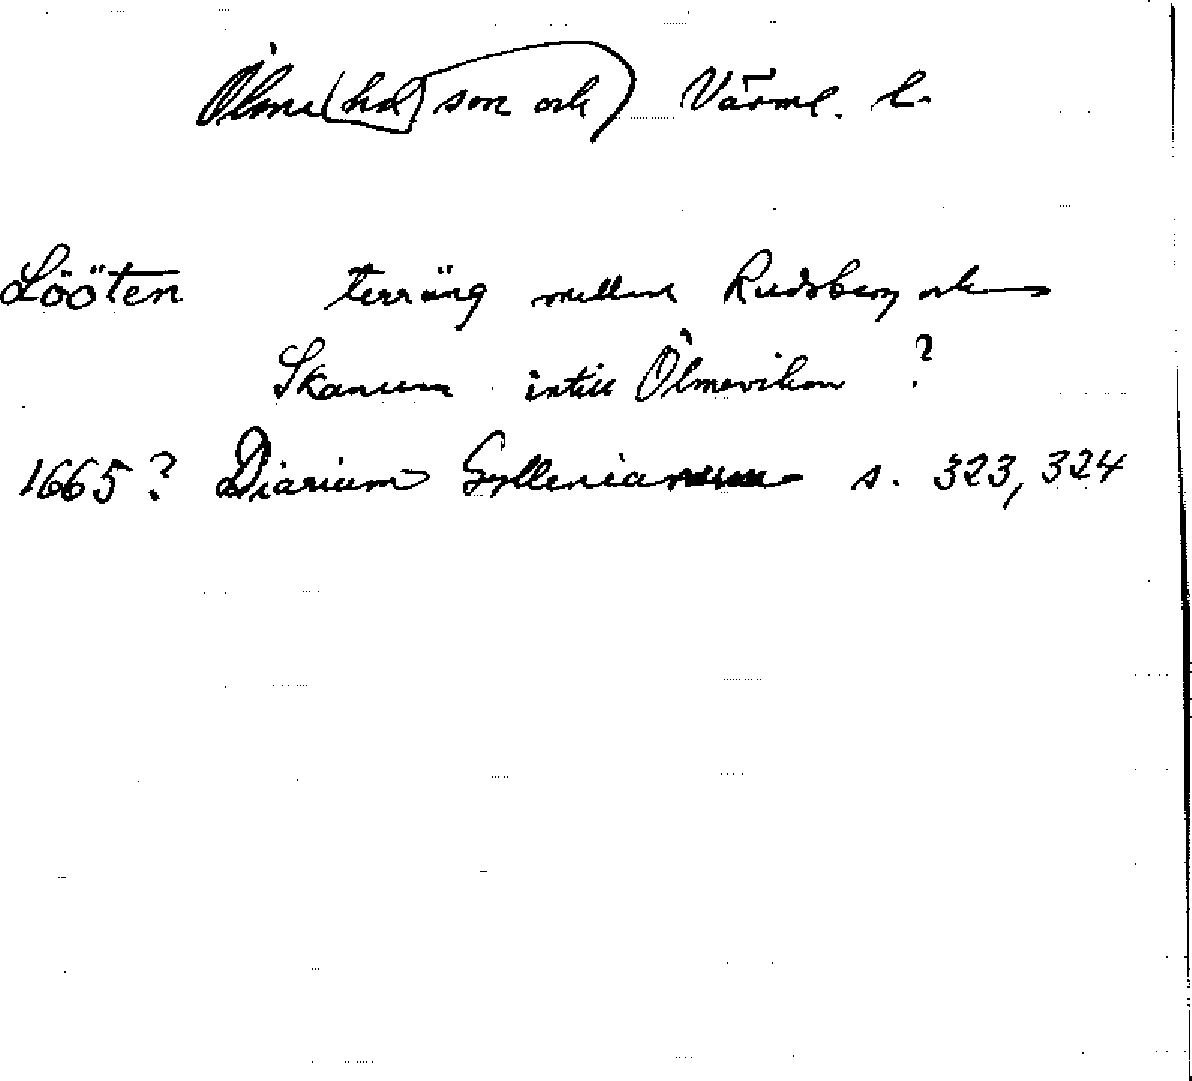 Ölme (hd) son och) Värml. l.
Lööten terräng mellan Rudsberg och
Skanum intill Ölmeviken ?
1665? Diarium Gyllenianum s. 323, 324